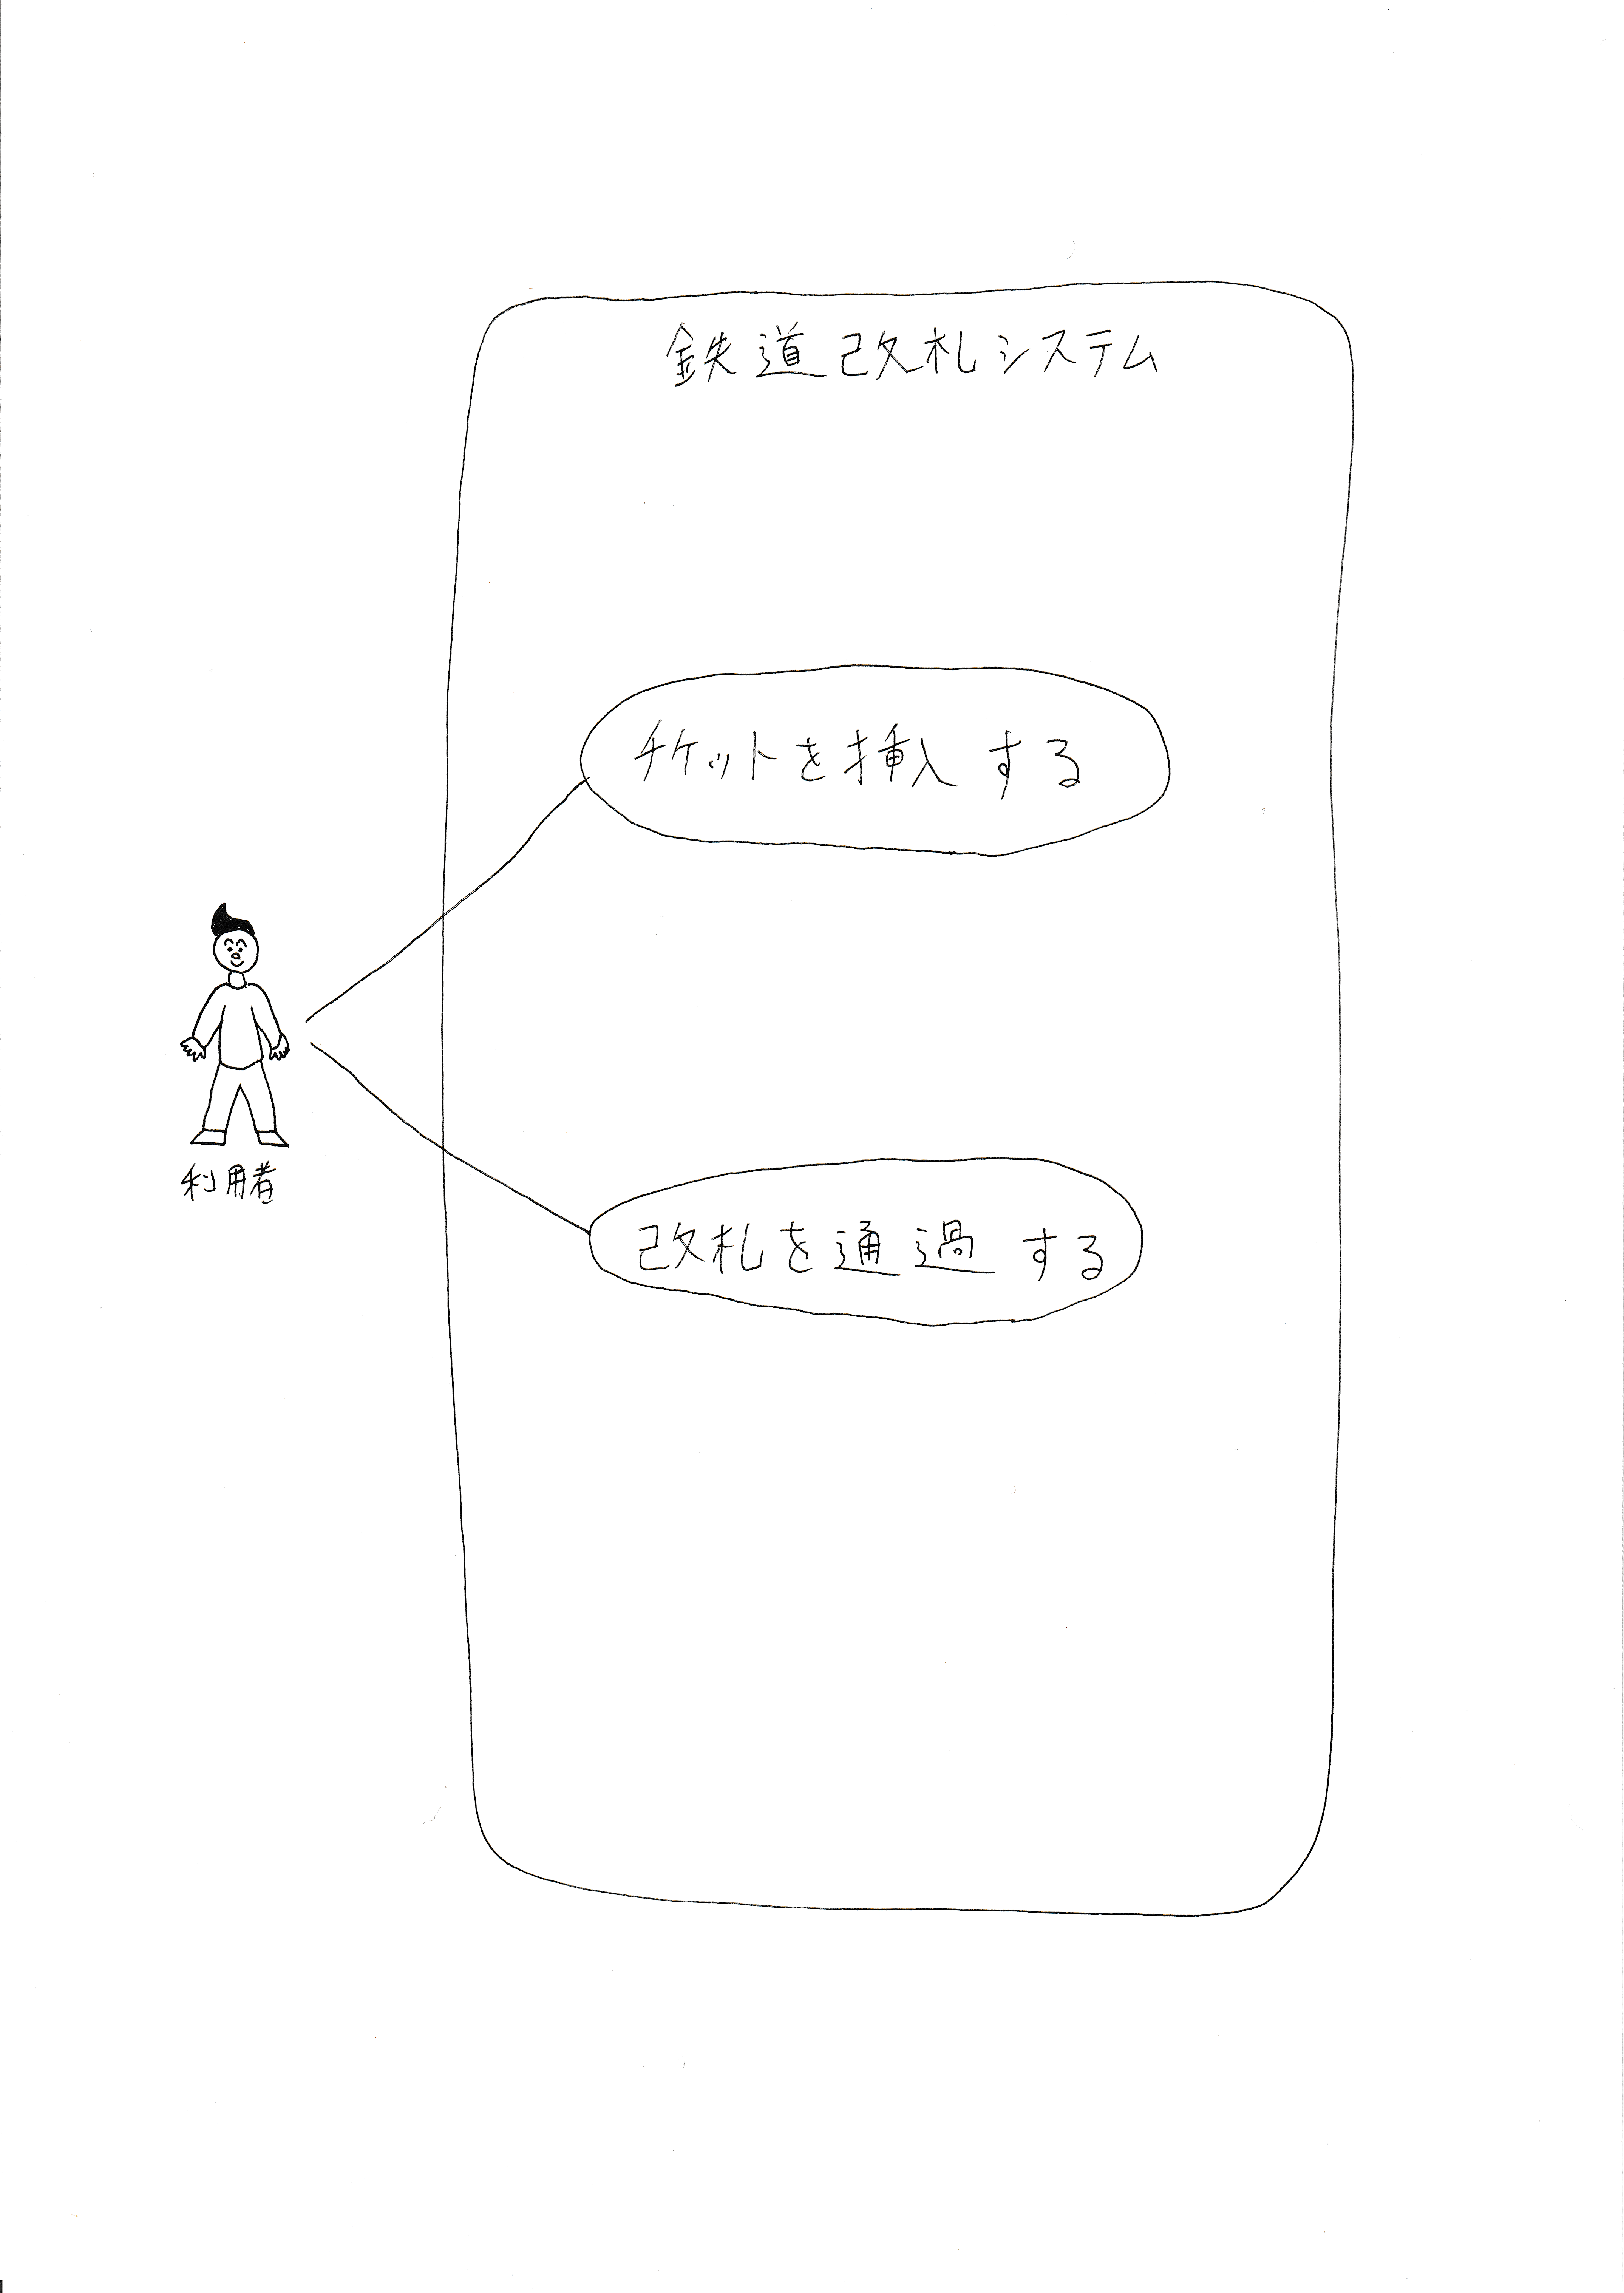 鉄道改札システム
チケットを挿入する
利用者
改札を通過する